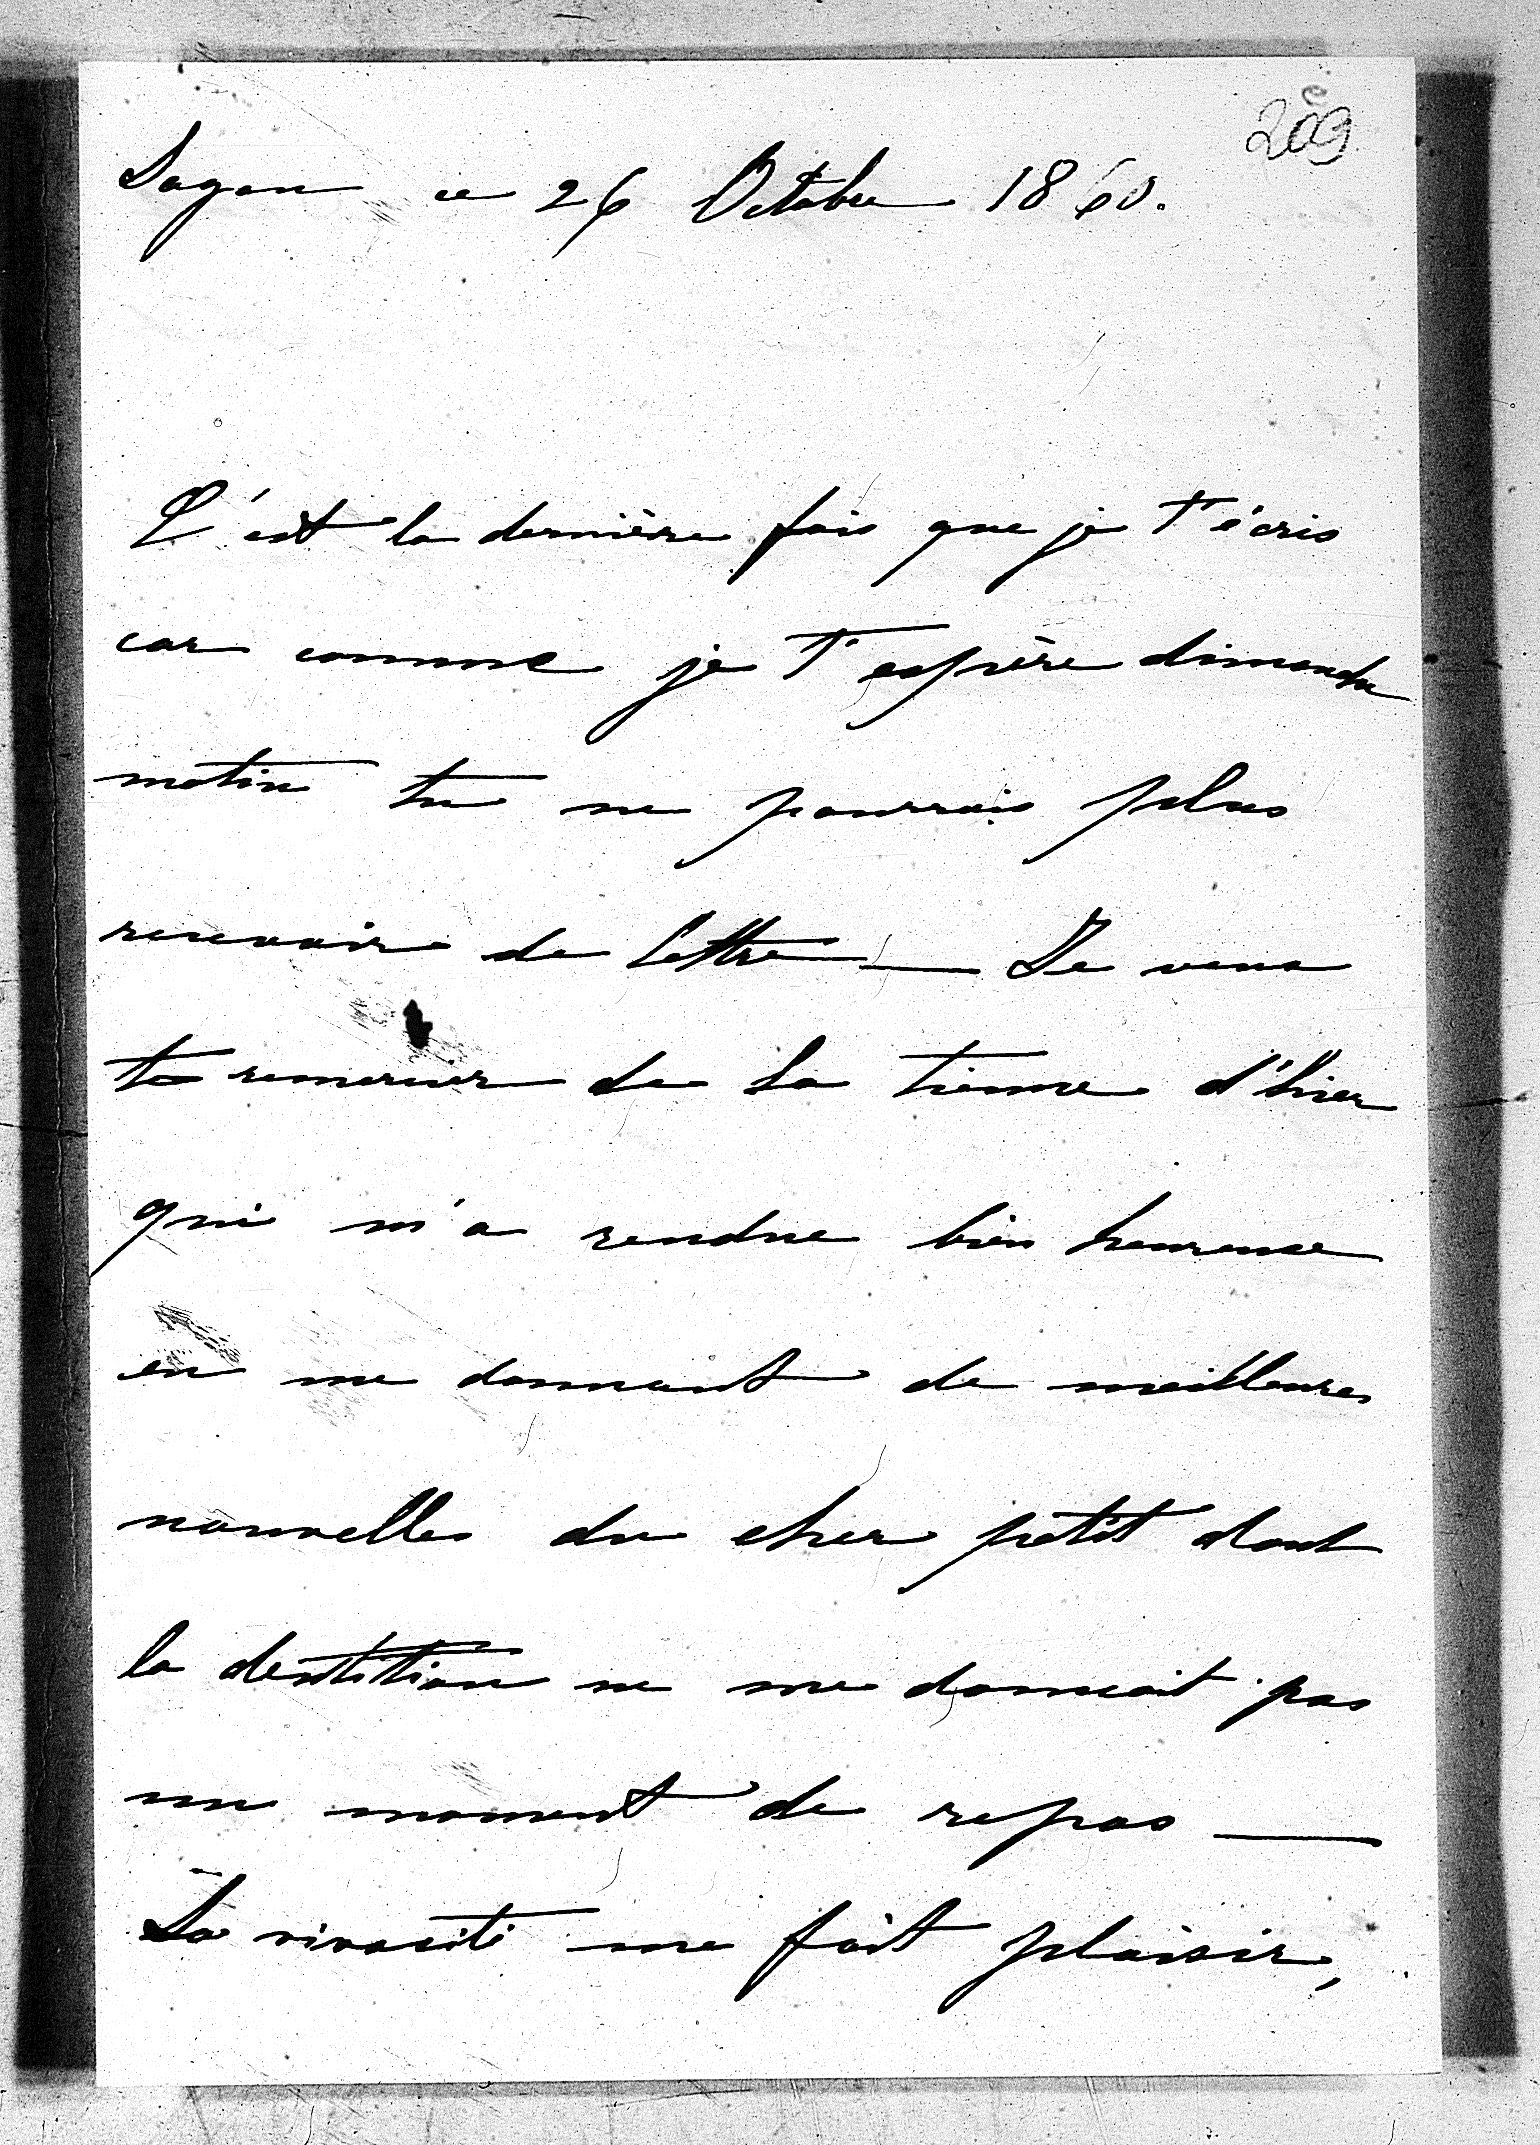 209
Sagan ce 26 Octobre 1860.
C'est la dernière fois que je t'écris
car comme je t'espère dimanche
matin tu ne pourrais plus
recevoir de lettre — Je veux
te remercier de la tienne d'hier
qui m'a rendue bien heureuse
en me donnant de meilleures
nouvelles du cher petit dont
la dentition ne me donnait pas
un moment de repos —
Sa vivacité me fait plaisir,